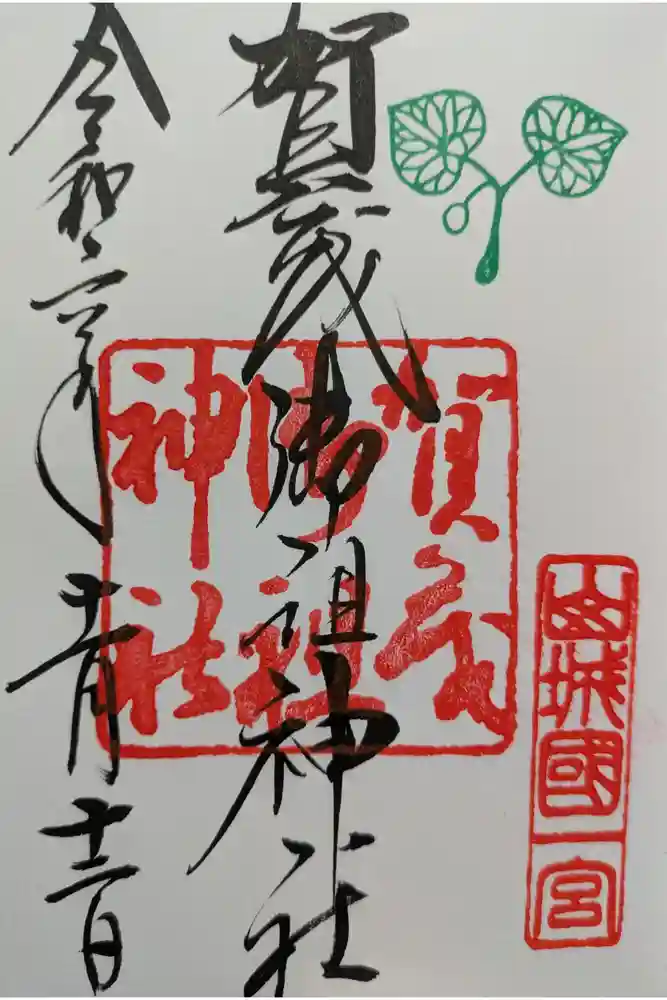 山城國一宮
賀茂御祖神社
賀茂
御祖
神社
令和二年十一月十二日